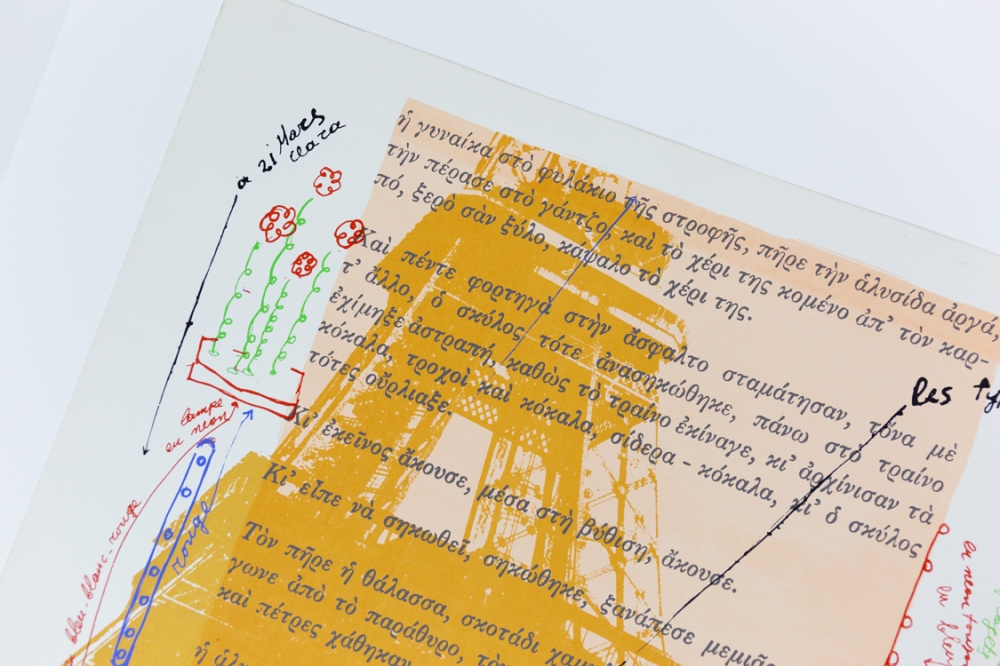 ἡ γυναίκα στὸ φυλάκιο τῆς στροφῆς, πῆρε τὴν ἁλυσίδα ἀργά,
τὴν πέρασε στὸ γάντζο, καὶ τὸ χέρι της κομένο ἀπ' τὸν καρ-
πό, ξερὸ σὰν ξύλο, κάψαλο τὸ χέρι της.
Καὶ πέντε φορτηγὰ στὴν ἄσφαλτο σταμάτησαν, τόνα μὲ
τ' ἄλλο, ὁ σκύλος τότε ἀνασηκώθηκε, πάνω στὸ τραίνο
ἐχίμηξε ἀστραπή, καθὼς τὸ τραίνο ἐκίναγε, κι' ἀρχίνισαν τὰ
κόκαλα, τροχοὶ καὶ κόκαλα, σίδερα - κόκαλα, κι' ὁ σκύλος
τότες οὔρλιαξε.
Κι' ἐκεῖνος ἄκουσε, μέσα στὴ βύθιση, ἄκουσε.
Κι' εἶπε νὰ σηκωθεῖ, σηκώθηκε, ξανάπεσε
Τὸν πῆρε ἡ θάλασσα, σκοτάδι
γωνε ἀπὸ τὸ παράθυρο,
καὶ πέτρες χάθηκαν
21 Mars
lampe
en neon
bleu-blanc-rouge
rouge
Les
en neon
en bleu